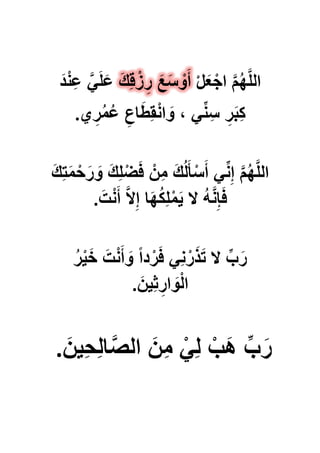 اللَّهُمَّ اجْعَلْ أَوْسَعَ رِزْقِكَ عَلَيَّ عِنْدَ
كِبَرِ سِنِّي ، وَانْقِطَاعِ عُمُرِي.
اللَّهُمَّ إِنِّي أَسْأَلُكَ مِنْ فَضْلِكَ وَرَحْمَتِكَ
فَإِنَّهُ لا يَمْلِكُهَا إِلاَّ أَنْتَ.
رَبِّ لا تَذَرْنِي فَرْداً وَأَنْتَ خَيْرُ
الْوَارِثِينَ.
رَبِّ هَبْ لِيْ مِنَ الصَّالِحِينَ.